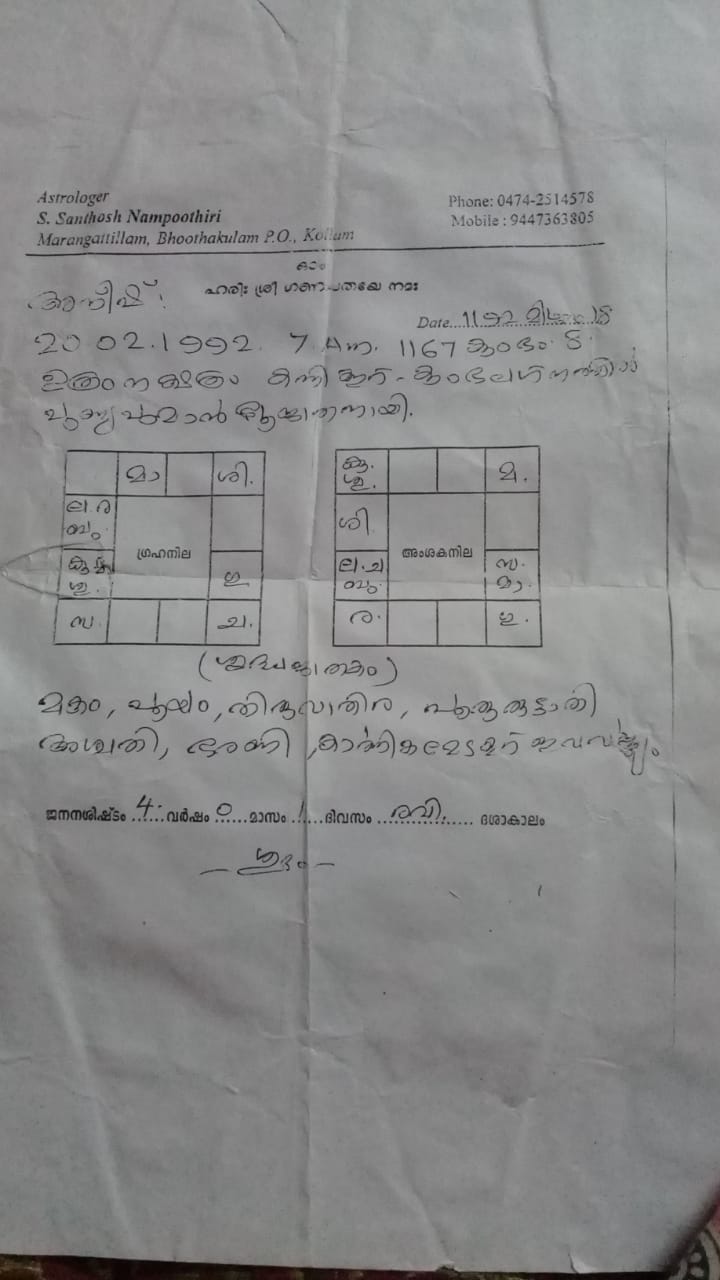 Astrologer
S. Santhosh Nampoothiri
Marangattillam, Bhoothakulam P.O., Kollam
Phone: 0474-2514578
Mobile : 9447363805
ഓം
ഹരിഃ ശ്രീ ഗണപതയേ നമഃ
അനീഷ്.
Date 1192 മിഥുനം 18
20 02.1992. 7 Am. 1167 കുംഭം 8.
ഉത്രം നക്ഷത്രം കന്നി കുംഭലഗ്നത്തിൽ
പുമാൻ
മാ ശി.
ല. ര
ബു.
ഗ്രഹനില
കു
ശു.
ഇ
സ ച.
കു.
ശു. മ.
ശി
അംശകനില
ല. ച
ബു.
സ.
മാ.
ര. ഇ.
(ശുദ്ധജാതകം)
മകം, പൂയം, തിരുവാതിര, പൂരുരുട്ടാതി
അശ്വതി, ഭരണി, കാർത്തിക
ജനനശിഷ്ടം 4 വർഷം 0 മാസം 1 ദിവസം രവി. ദശാകാലം
— ശുഭം —